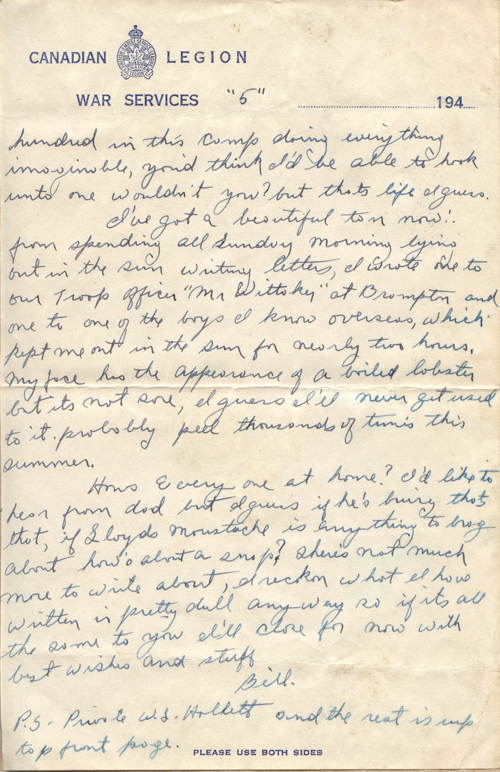 CANADIAN LEGION
WAR SERVICES "5" 194
hundred in this camp doing everything
imaginable, you'd think I'd be able to hook
unto one wouldn't you? but thats life I guess.
I've got a beautiful tan now!.
from spending all Sunday morning lying
out in the sun writing letters, I wrote one to
our Troop Officer "Mr Wittskey" at Brampton and
one to one of the boys I know overseas, which
kept me out in the sun for nearly two hours.
My face has the appearance of a boiled lobster
but its not sore, I guess I'll never get used
to it. probably peel thousands of times this
summer.
Hows Every one at home? I'd like to
hear from dad but I guess if he's busy thats
that, if Lloyds moustache is anything to brag
about how's about a snap? There's not much
more to write about, I reckon what I have
written is pretty dull any way so if its all
the same to you I'll close for now with
best wishes and stuff
Bill.
P.S. Private W.S. Hallett and the rest is up
top front page.
PLEASE USE BOTH SIDES